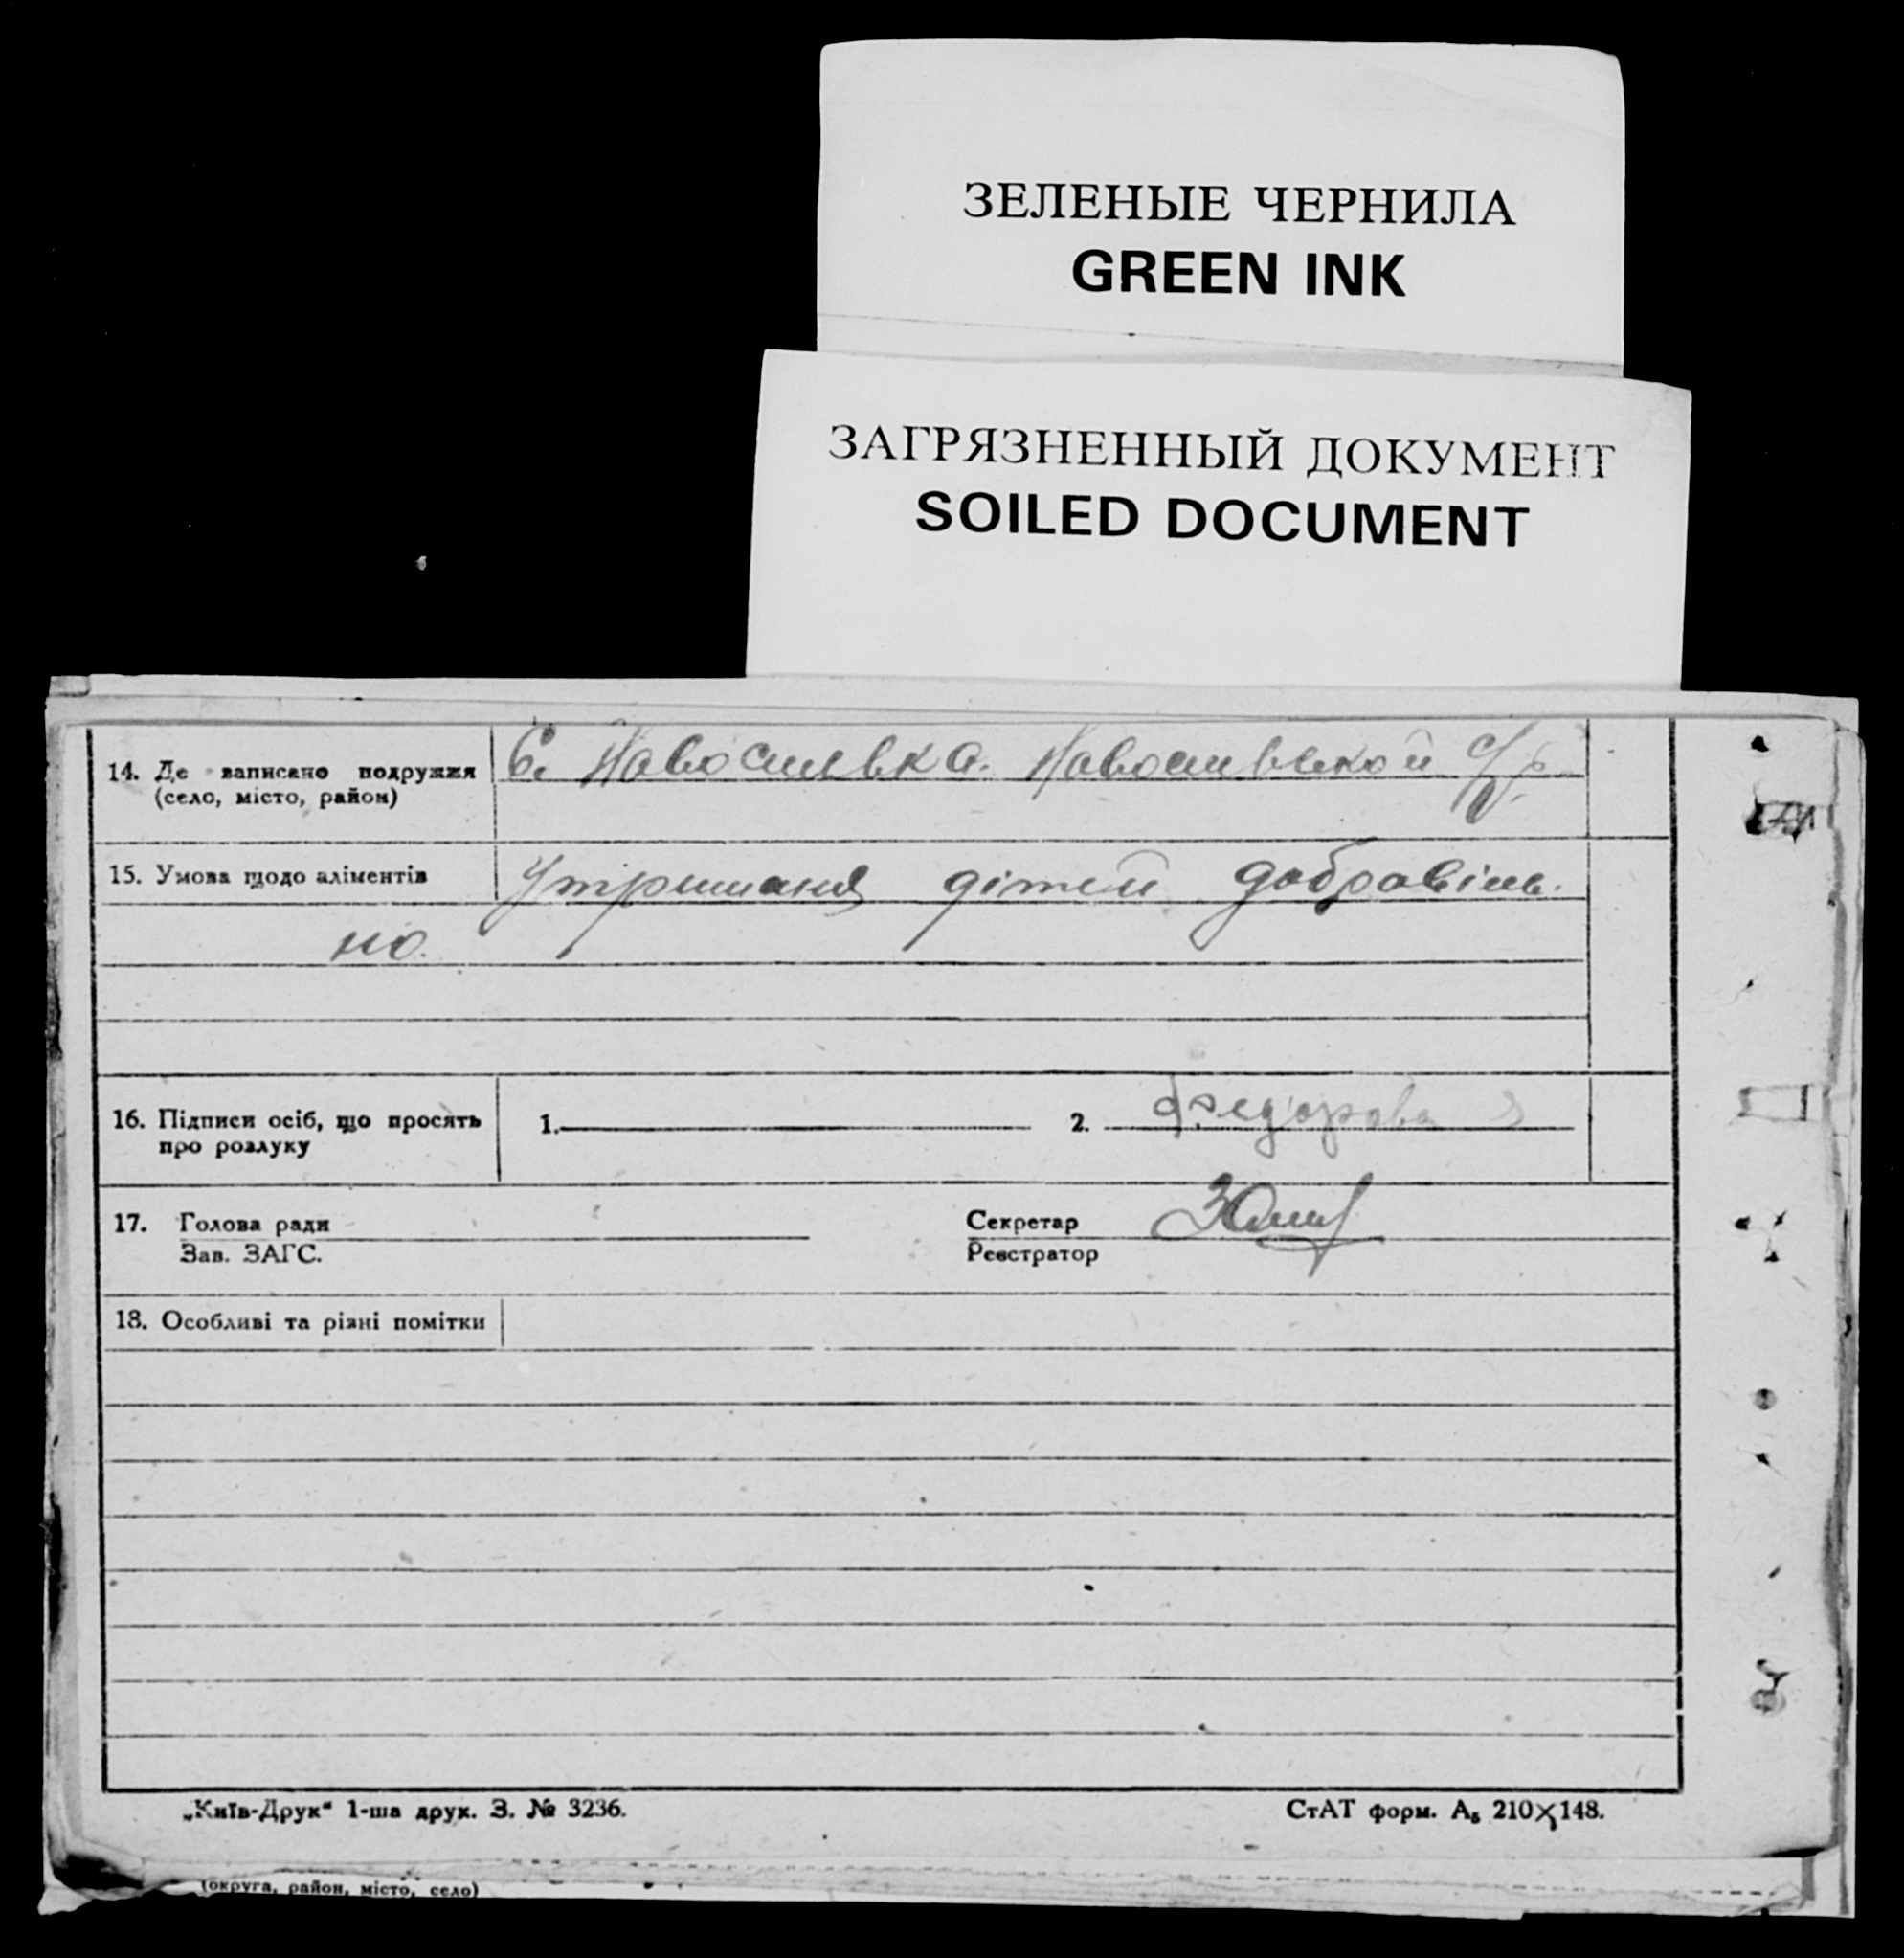 ЗЕЛЕНЫЕ ЧЕРНИЛА
GREEN INK
ЗАГРЯЗНЕННЫЙ ДОКУМЕНТ
SOILED DOCUMENT
14. Де записано подружжя С. Новосилькa. Новосильской с/р.
(село, місто, район)
15. Умова щодо аліментів Утриманя дітей добровіль-
но.
16. Підписи осіб, що просять 1. 2. Федорова
про розлуку
17. Голова ради Секретар
Зав. ЗАГС. Реєстратор
18. Особливі та різні помітки
„Київ-Друк“ 1-ша друк. З. № 3236. СтАТ форм. А₅ 210×148.
(округа, район, місто, село)